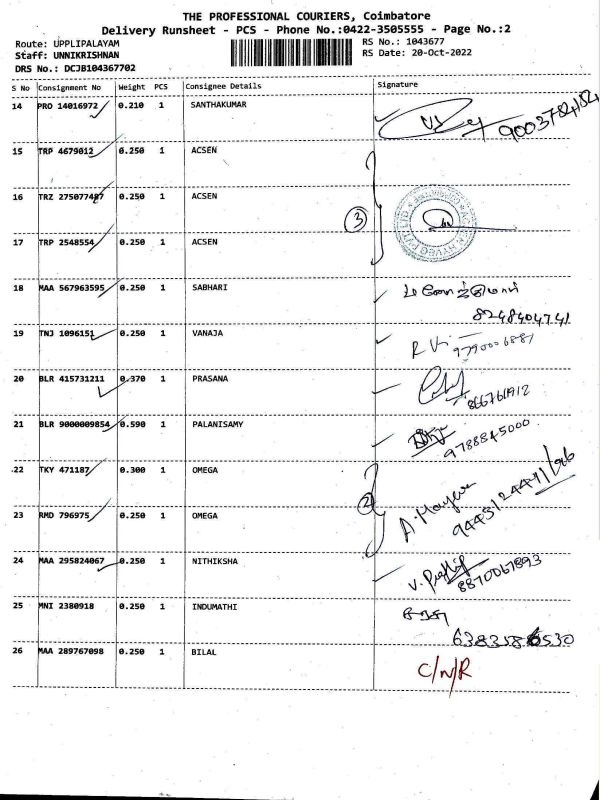 THE PROFESSIONAL COURIERS, Coimbatore
Delivery Runsheet - PCS - Phone No.:0422-3505555 - Page No.:2
Route: UPPLIPALAYAM RS No.: 1043677
Staff: UNNIKRISHNAN RS Date: 20-Oct-2022
DRS No.: DCJB104367702
S No Consignment No Weight PCS Consignee Details Signature
14 PRO 14016972 0.210 1 SANTHAKUMAR 9003784184
15 TRP 4679012 0.250 1 ACSEN
16 TRZ 275077487 0.250 1 ACSEN 3
17 TRP 2548554 0.250 1 ACSEN
18 MAA 567963595 0.250 1 SABHARI
8248404741
19 TNJ 1096151 0.250 1 VANAJA
20 BLR 415731211 0.370 1 PRASANA
866761912
21 BLR 9000009854 0.590 1 PALANISAMY
9788845000
22 TKY 471187 0.300 1 OMEGA 2
23 RMD 796975 0.250 1 OMEGA
24 MAA 295824067 0.250 1 NITHIKSHA
8870067893
25 MNI 2380918 0.250 1 INDUMATHI
26 MAA 289767098 0.250 1 BILAL C/N/R